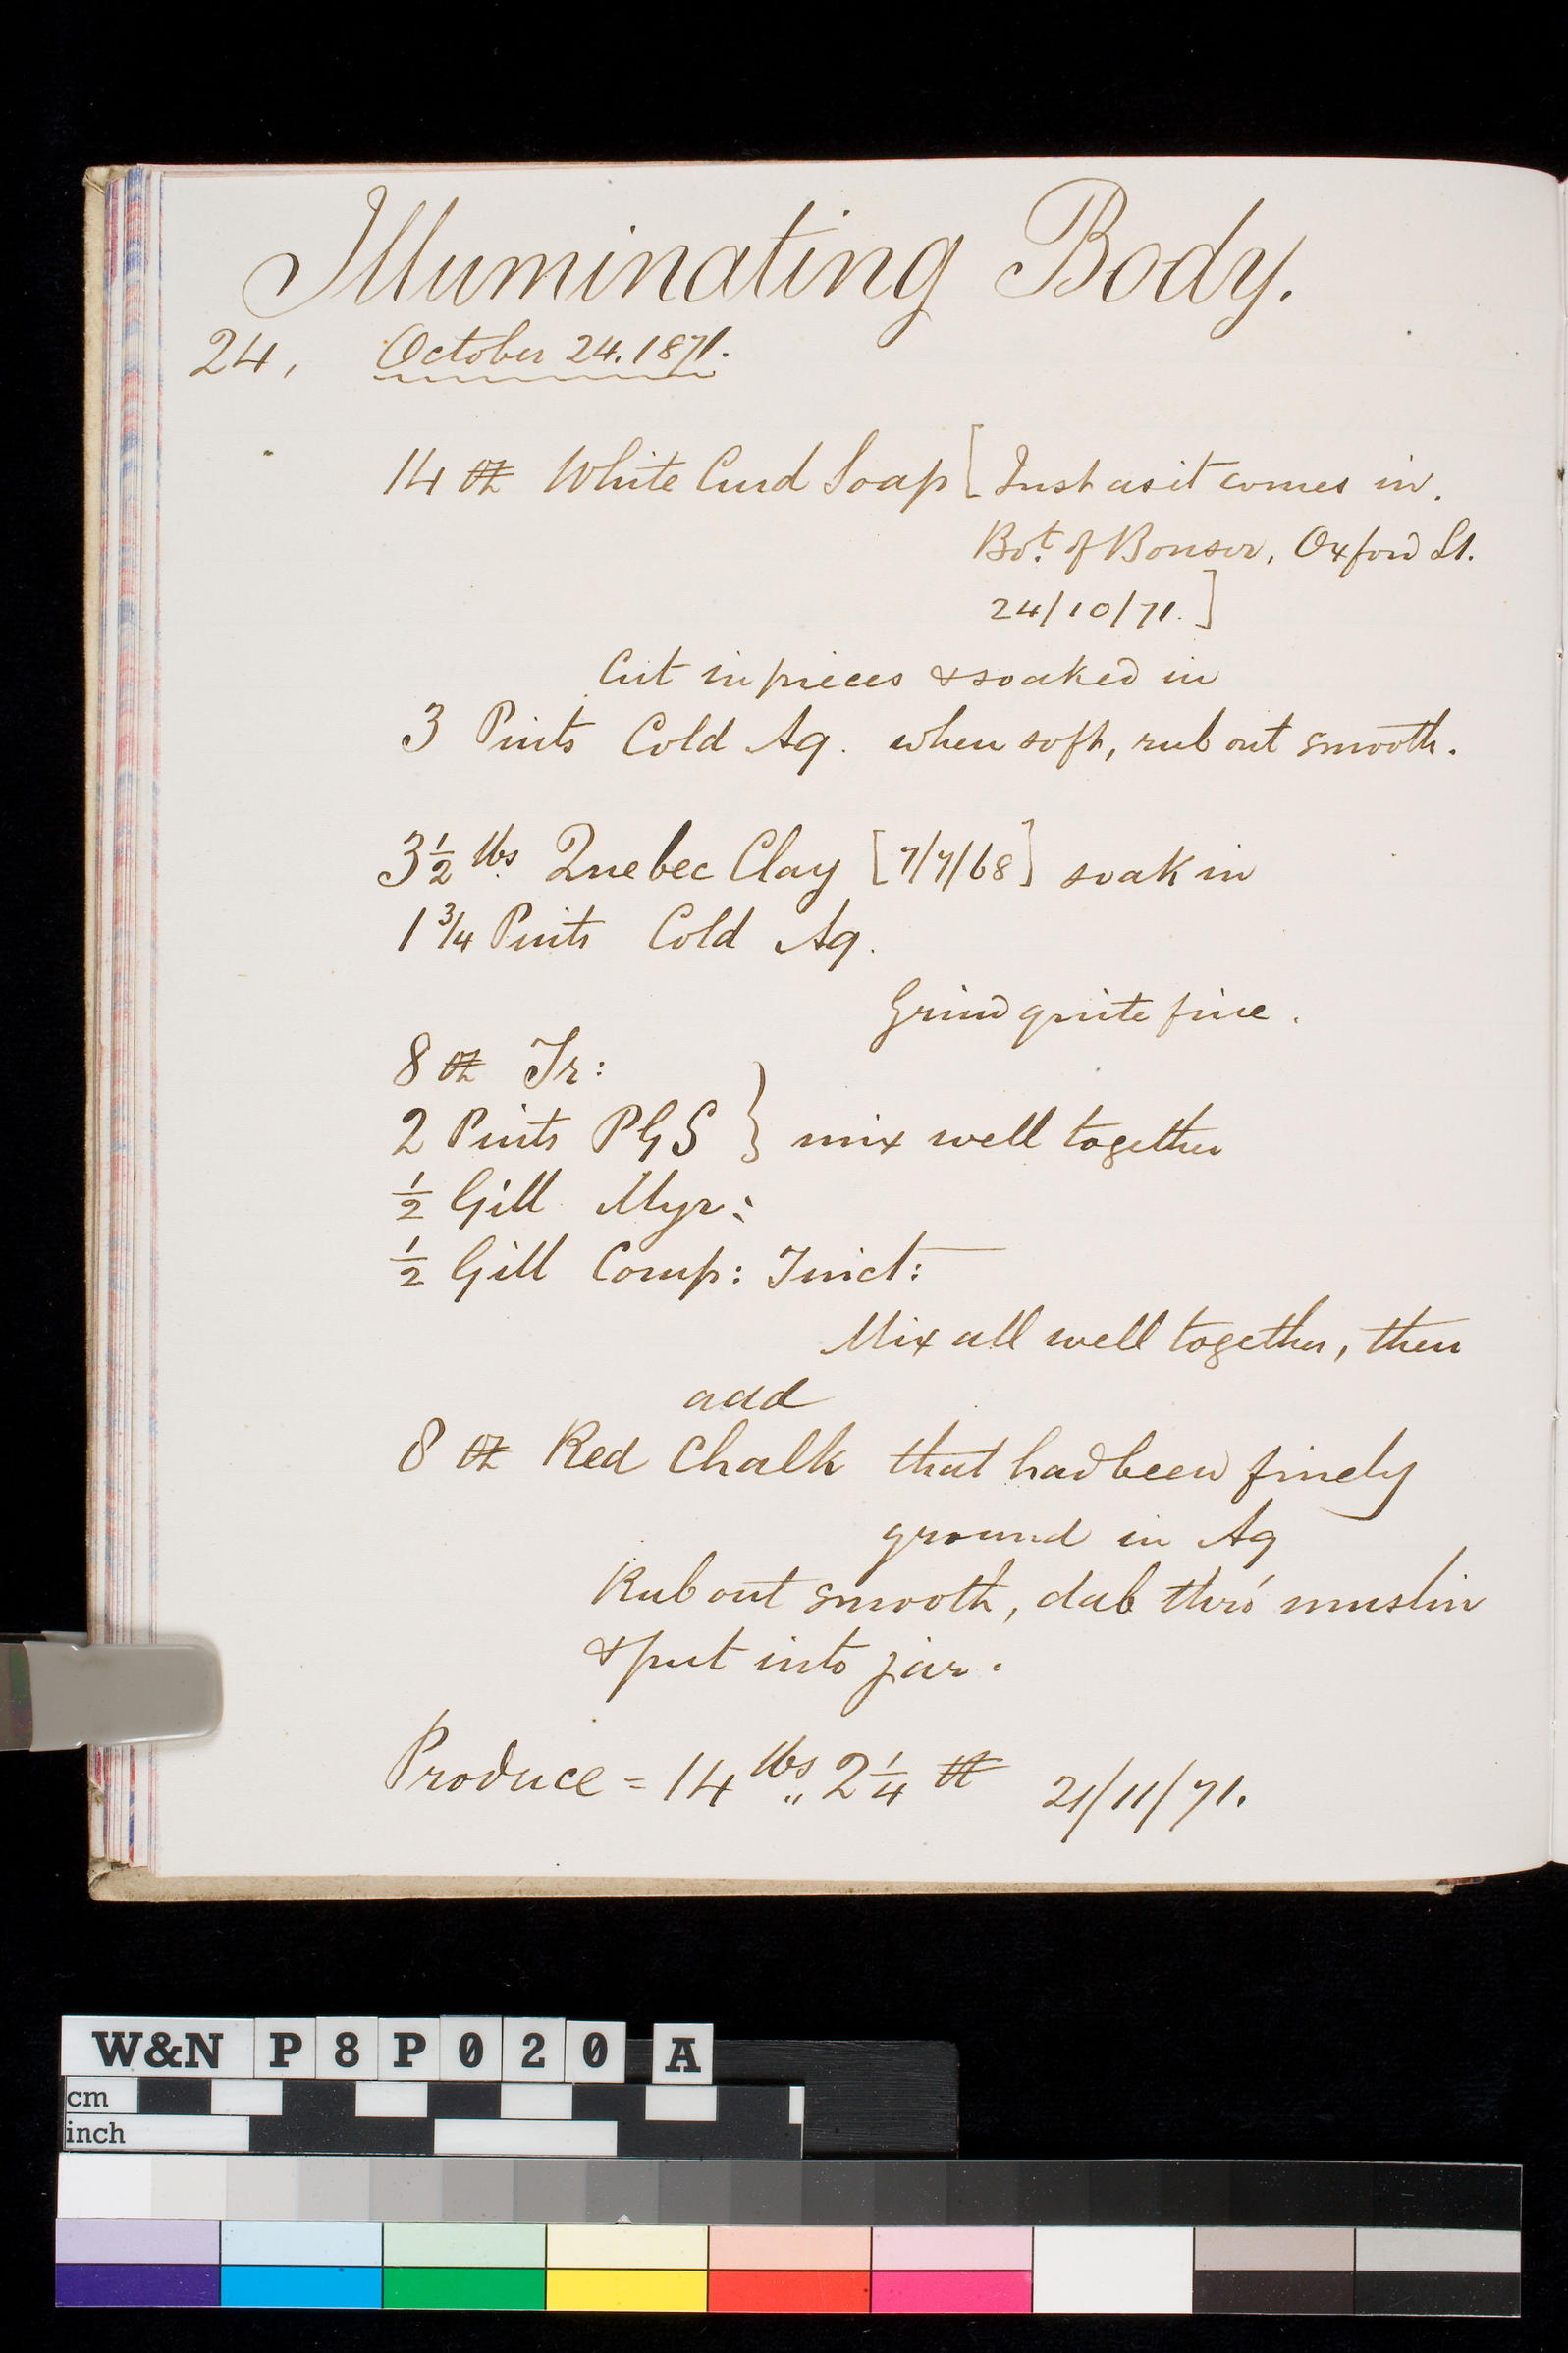 Illuminating Body.
24, October 24. 1871.
14 oz White Curd Soap [Just as it comes in.
Bot. of Bonser, Oxford St.
24/10/71.]
Cut in pieces & soaked in
3 Pints Cold Aq. when soft, rub out smooth.
3½ lbs Quebec Clay [7/7/68] soak in
1¾ Pints Cold Aq.
Grind quite fine.
8 oz Tr:
2 Pints PGS } mix well together
½ Gill Myr:
½ Gill Comp: Tinct:
Mix all well together, then
add
8 oz Red Chalk that had been finely
ground in Aq
Rub out smooth, dab thro' muslin
& put into jar.
Produce = 14 lbs „ 2¼ oz 21/11/71.
W&N P8P020 A
cm
inch